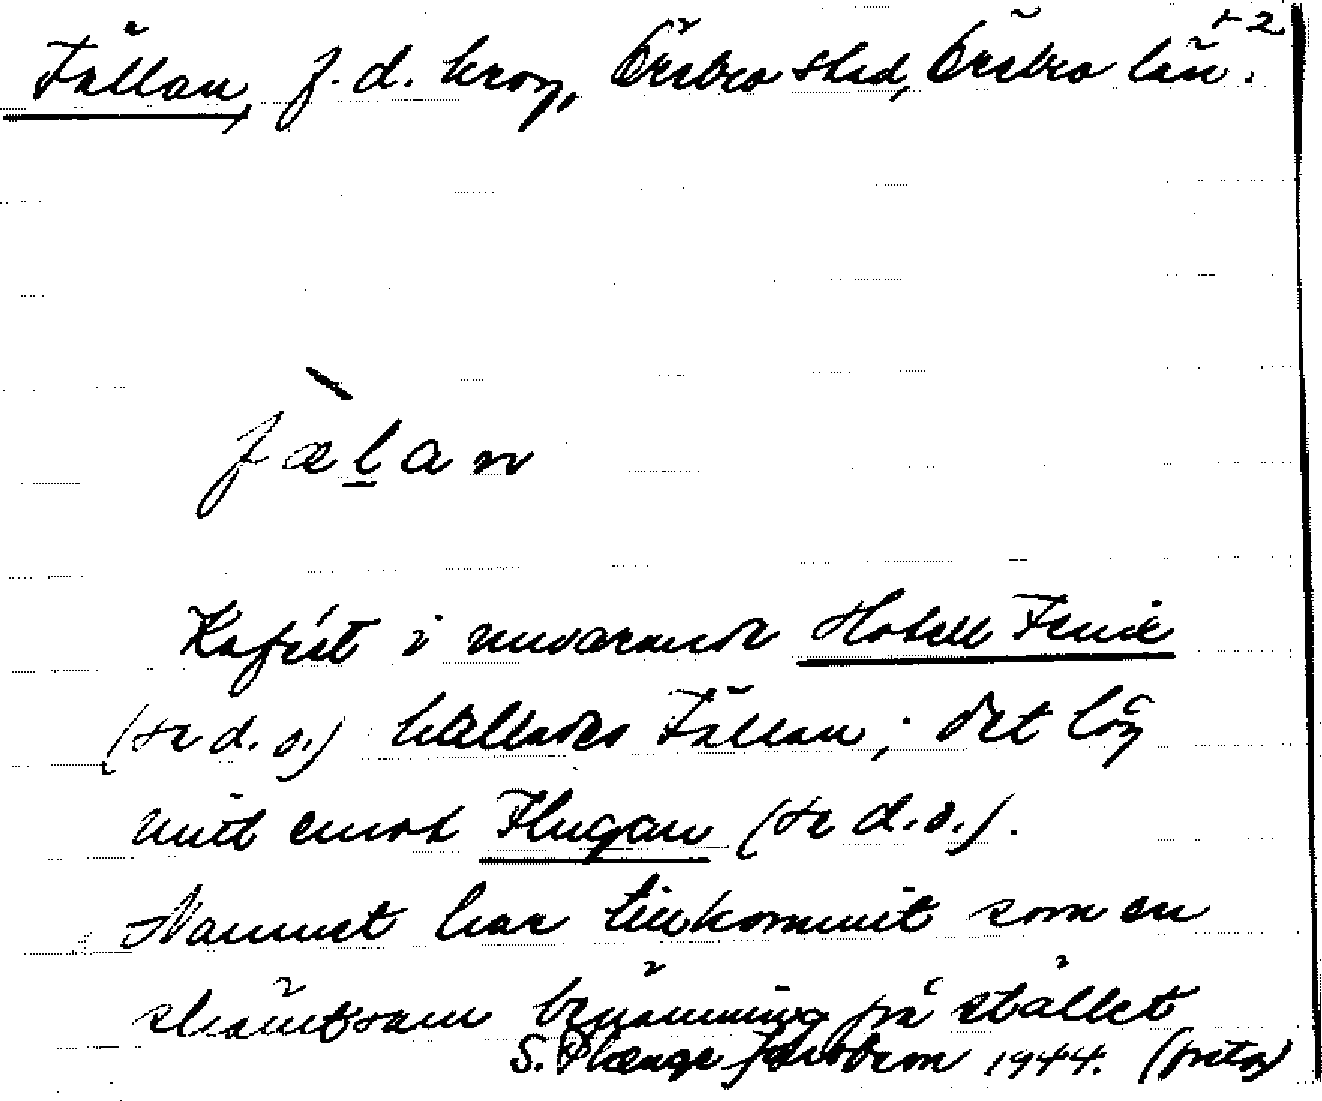 +2
Fällan, f.d. krog, Örebro stad, Örebro län.
fæl̠an
Kaféet i nuvarande Hotell Fenix
(se d.o.) kallades Fällan; det låg
mitt emot Flugan (se d.o.).
Namnet har tillkommit som en
skämtsam benämning på stället
S. 1944.